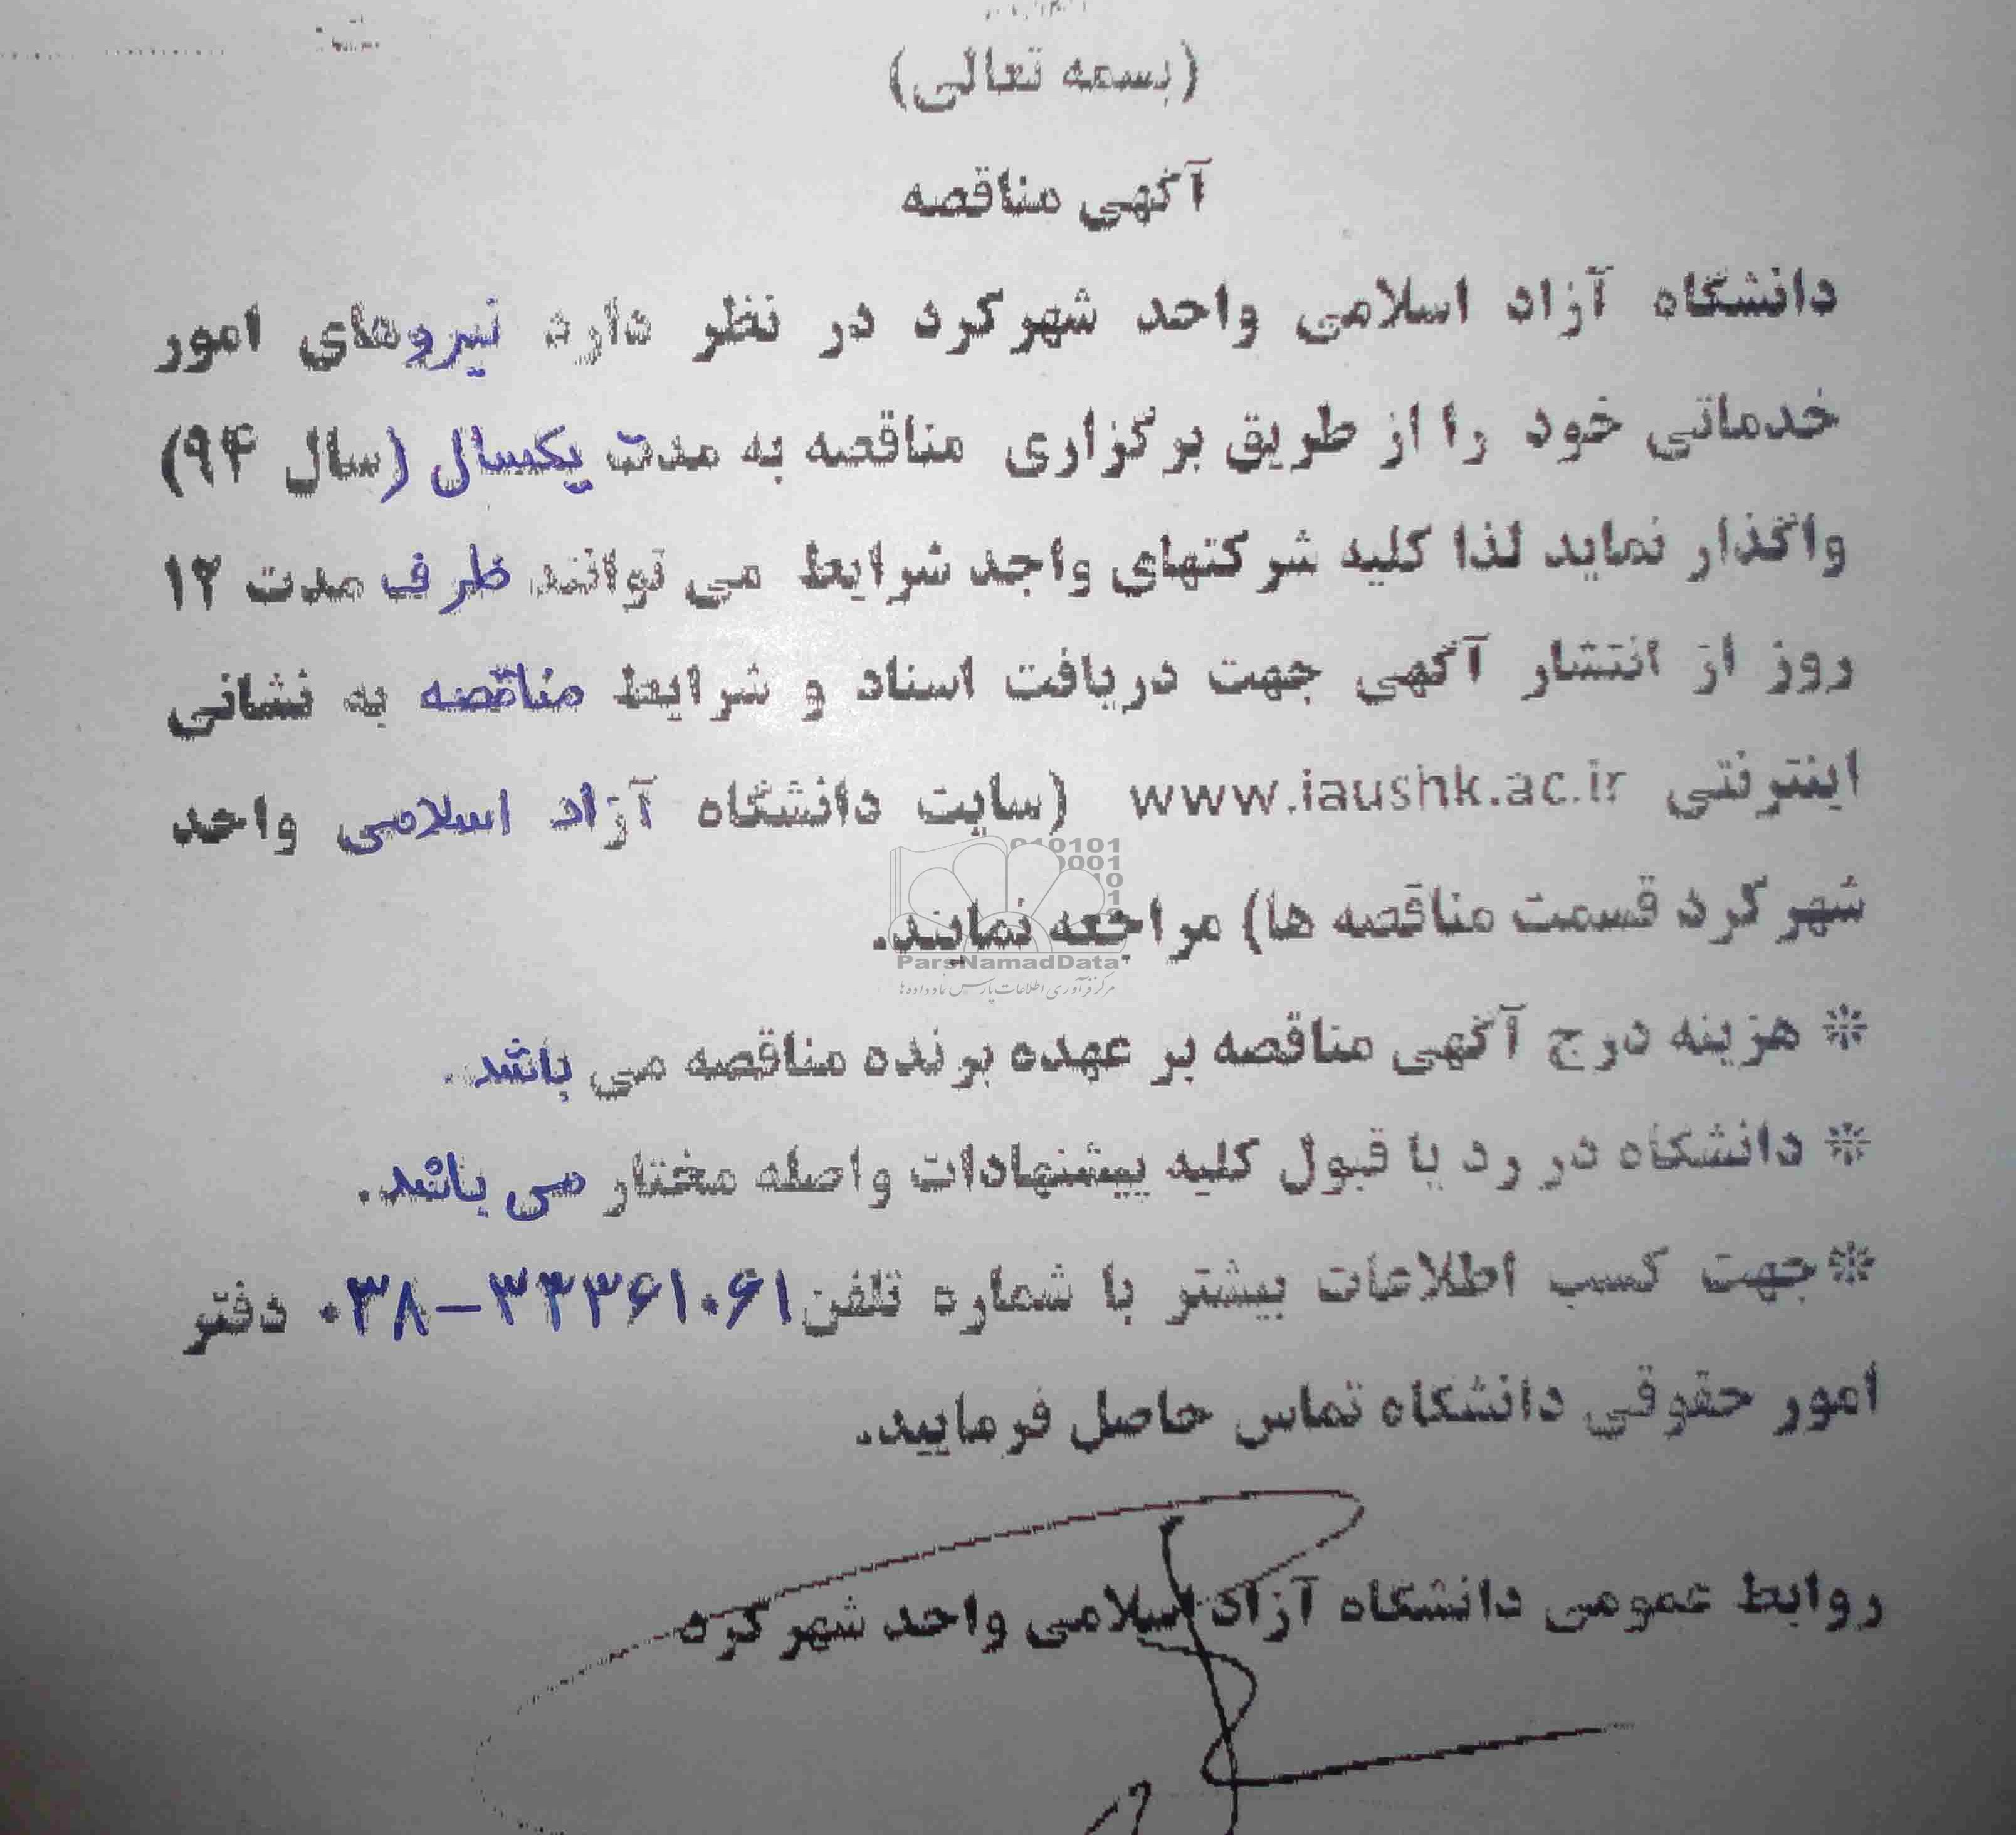 (بسمه تعالی)
آگهی مناقصه
دانشگاه آزاد اسلامی واحد شهرکرد در نظر دارد نیروهای امور
خدماتی خود را از طریق برگزاری مناقصه به مدت یکسال (سال ۹۴)
واگذار نماید لذا کلیه شرکتهای واجد شرایط می توانند ظرف مدت ۱۲
روز از انتشار آگهی جهت دریافت اسناد و شرایط مناقصه به نشانی
اینترنتی www.iaushk.ac.ir (سایت دانشگاه آزاد اسلامی واحد
شهرکرد قسمت مناقصه ها) مراجعه نمایند.
ParsNamadData
مرکز فرآوری اطلاعات پارس نماد داده ها
* هزینه درج آگهی مناقصه بر عهده برنده مناقصه می باشد.
* دانشگاه در رد یا قبول کلیه پیشنهادات واصله مختار می باشد.
*جهت کسب اطلاعات بیشتر با شماره تلفن ۳۳۳۶۱۰۶۱-۰۳۸ دفتر
امور حقوقی دانشگاه تماس حاصل فرمایید.
روابط عمومی دانشگاه آزاد اسلامی واحد شهرکرد